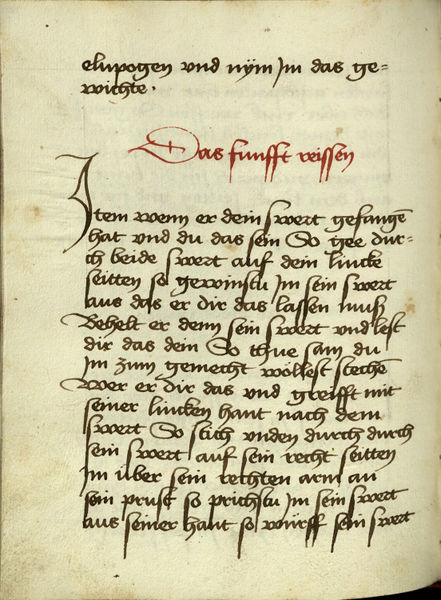 elnpogen vnd nÿm Jm das ge=
wichte .
Das funfft reissen
Jtem wenn er dein swert gefangē
hat vnd du das sein So gee dur=
ch beide swert auf dein lincke
seitten so gewinstu Jm sein swert
aus das er dir das lassen muß
Behelt er denn sein swert vnd lest
dir das dein So thue sam du
Jm zum gemecht wöllest stechen
Wer er dir das vnd greifft mit
seiner lincken hant nach dem
swert So stich vnden durch durch
sein swert auf sein recht seitten
Jm über sein rechten arm an
sein prust so prichstu Jm sein swert
aus seiner hant so würff sein swert